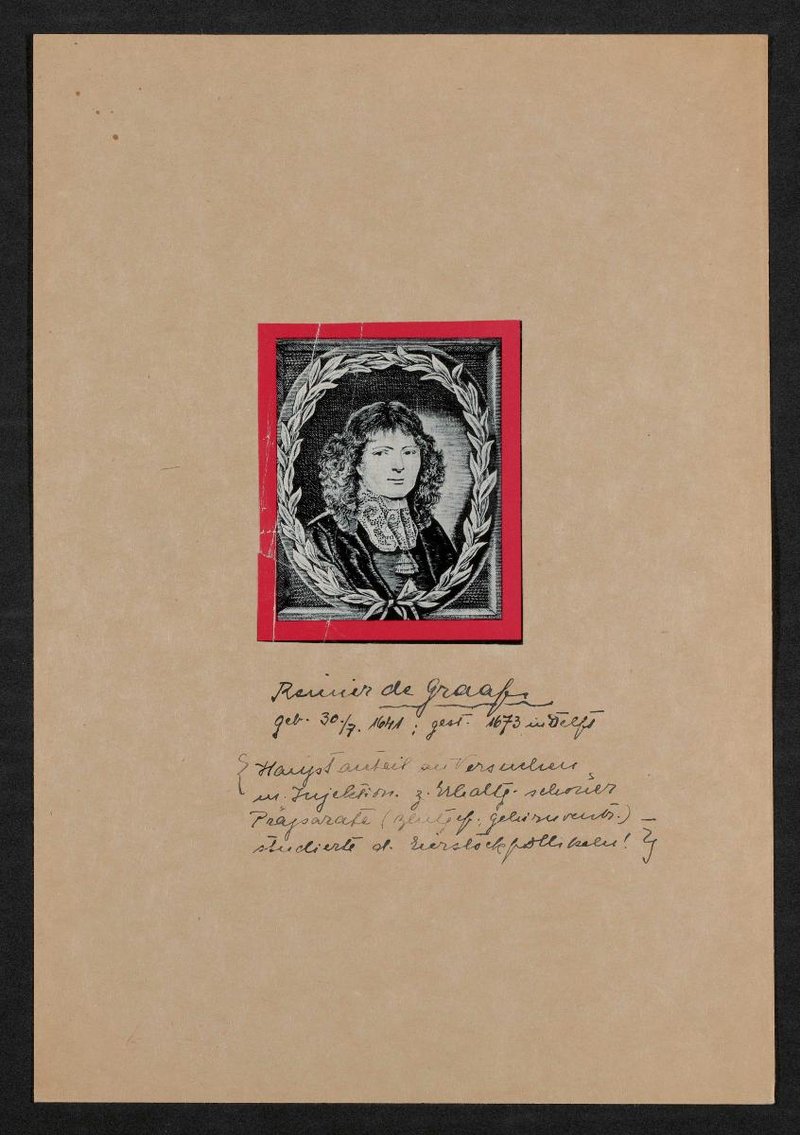 Reinier de Graaf
geb. 30./7. 1641; gest. 1673 in Delft
Hauptanteil an Versuchen
m. Injektion. z. Erhaltg. schöner
Präparate (Blutgef., Gehirnventr.) –
studierte d. Eierstockfollikeln!